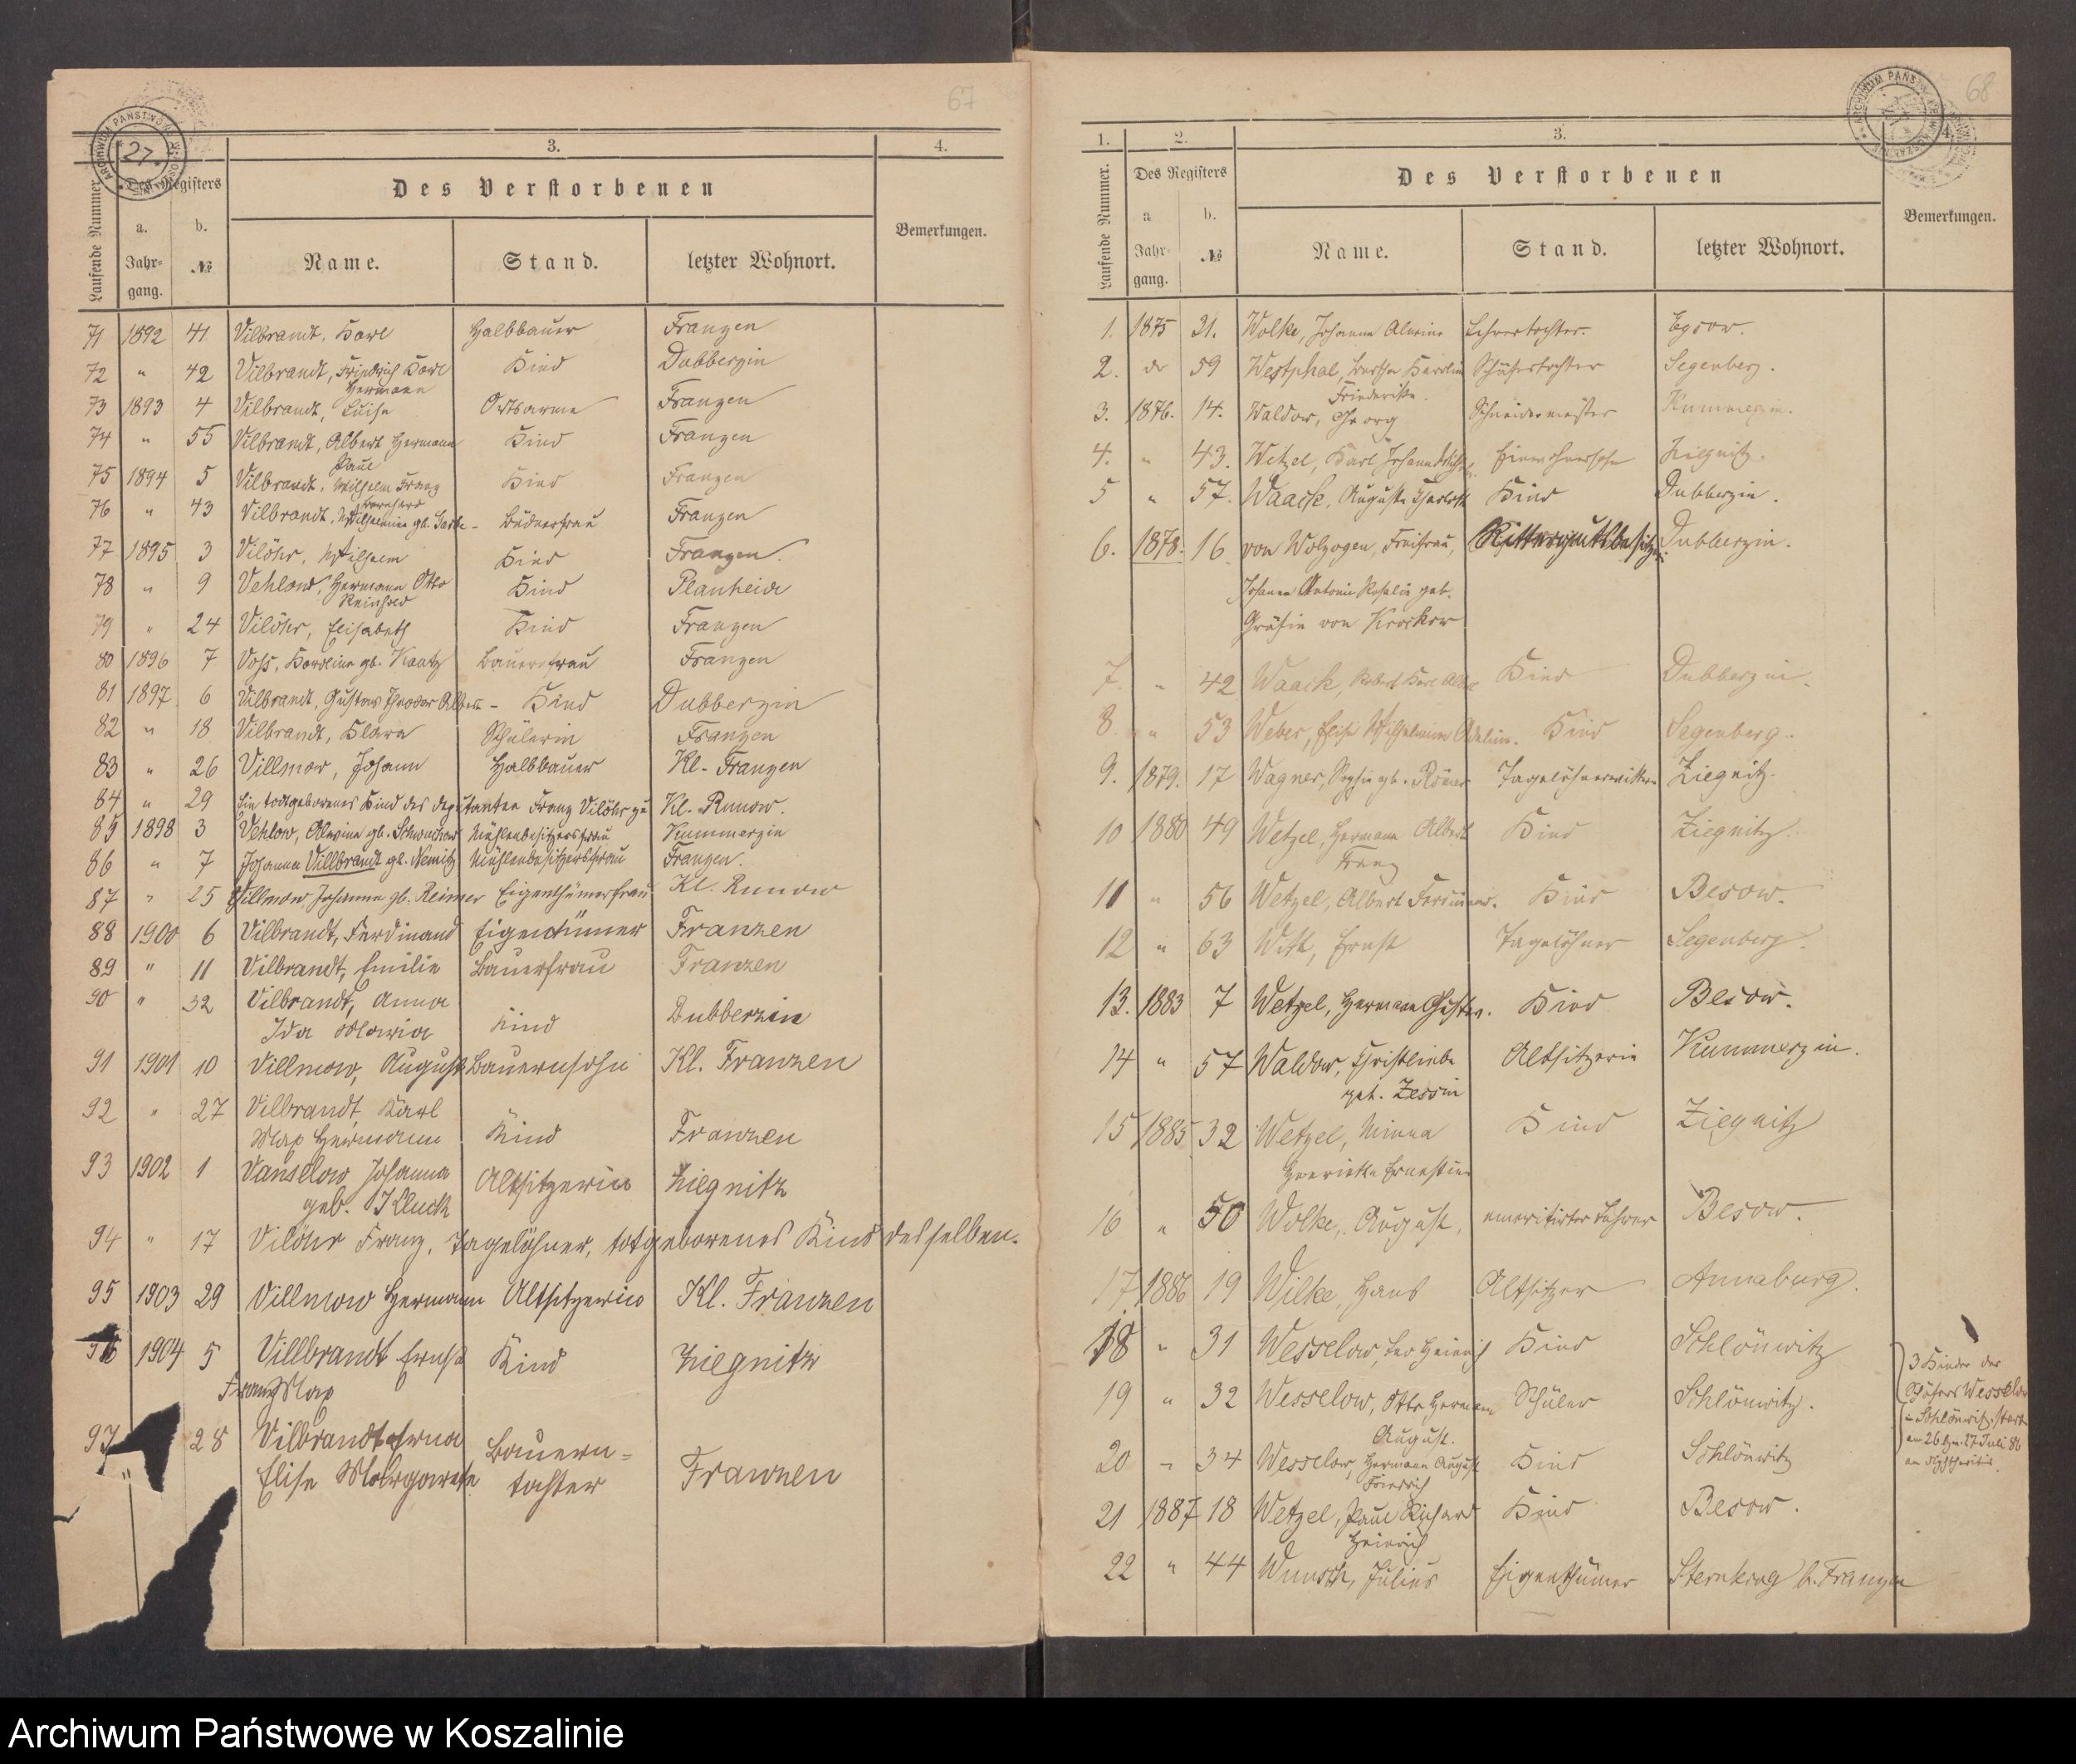 67
ARCHIWUM PAŃSTWOWE W KOSZALINIE
27
3.
4.
Laufende Nummer.
Des Registers
Des Verstorbenen
a. Jahrgang.
b. №
Name.
Stand.
letzter Wohnort.
Bemerkungen.
71 1892 41 Vilbrandt, Karl Halbbauer Franzen
72 " 42 Vilbrandt, Friedrich Karl Kind Dubberzin
Hermann
73 1893 4 Vilbrandt, Luise Ortsarme Franzen
74 " 55 Vilbrandt, Albert Hermann Kind Franzen
Paul
75 1894 5 Vilbrandt, Wilhelm Franz Kind Franzen
76 " 43 Vilbrandt, Wilhelmine gb. Büdnerfrau Franzen
77 1895 3 Vilöhr, Wilhelm Kind Franzen.
78 " 9 Vehlow, Hermann Otto Kind Planheide
Reinhold
79 " 24 Vilöhr, Elisabeth Kind Franzen
80 1896 7 Voss, Karoline gb. Kautz Bauersfrau Franzen
81 1897 6 Vilbrandt, Gustav Theodor Albert - Kind Dubberzin
82 " 18 Vilbrandt, Klara Schülerin Franzen
83 " 26 Villmow, Johann Halbbauer Kl. Franzen
84 " 29 Ein todtgeborenes Kind des Deputanten Franz Vilöhr zu Kl. Runow.
85 1898 3 Vehlow, Alwine gb. Mühlenbesitzersfrau Kummerzin
86 " 7 Johanna Villbrandt gb. Nemitz Mühlenbesitzersfrau Franzen.
87 " 25 Villmow, Johanna gb. Reimer Eigenthümerfrau Kl. Runow
88 1900 6 Vilbrandt, Ferdinand Eigentümer Franzen
89 " 11 Vilbrandt, Emilie Bauerfrau Franzen
90 " 32 Vilbrandt, Anna
Ida Maria Kind Dubberzin
91 1901 10 Villmow, August Bauernsohn Kl. Franzen
92 " 27 Vilbrandt, Karl
Max Hermann Kind Franzen
93 1902 1 Vanselow, Johanna Altsitzerin Ziegnitz
geb. Kluck
94 " 17 Vilöhr Franz, Tagelöhner, totgeborenes Kind desselben.
95 1903 29 Villmow Hermann Altsitzerin Kl. Franzen
96 1904 5 Villbrandt Ernst Kind Ziegnitz
Franz Max
97 " 28 Vilbrandt Erna Bauern=
Elise Margarete tochter Franzen
68
ARCHIWUM PAŃSTWOWE W KOSZALINIE
1.
2.
3.
4.
Laufende Nummer.
Des Registers
Des Verstorbenen
a Jahrgang.
b. №
Name.
Stand.
letzter Wohnort.
Bemerkungen.
1. 1875 21. Wolke, Johanna Alwine Lehrertochter. Egsow.
2. do 59 Westphal, Bertha Karoline Schäfertochter Segenberg.
Friederike.
3. 1876. 14. Waldow, Georg Schneidermeister Kummerzin.
4. " 43. Wetzel, Karl Johann Einwohnersohn Ziegnitz.
5 " 57. Waack, Auguste Charlotte Kind Dubberzin.
6. 1878. 16. von Wolzogen, Freifrau, Rittergutsbesitzer Dubberzin.
Johanna Antonie Rosalie geb.
Gräfin von Krockow
7. " 42 Waack, Robert Karl Kind Dubberzin.
8. " 53 Weber, Elise Wilhelmine Adeline. Kind Segenberg.
9. 1879. 17 Wagner, Sophie gb. Römer Tagelöhnerwittwe Ziegnitz.
10 1880 49 Wetzel, Hermann Albert Kind Ziegnitz.
Franz
11 " 56 Wetzel, Albert Ferdinand. Kind Besow.
12 " 63 Witt, Ernst Tagelöhner Segenberg.
13. 1883 7 Wetzel, Hermann Gustav. Kind Besow.
14 " 57 Waldow, Christliebe Altsitzerin Kummerzin.
geb. Zessin
15 1885 32 Wetzel, Minna Kind Ziegnitz
Henriette Ernestine
16 " 50 Wolke, August, emeritirter Lehrer Besow.
17 1886 19 Wilke, Hans Altsitzer Annaburg.
18 " 31 Wesselow, Leo Heinrich Kind Schlönwitz
19 " 32 Wesselow, Otto Hermann Schüler Schlönwitz.
August.
20 " 34 Wesselow, Hermann August Kind Schlönwitz
Friedrich
3 Kinder des
Schäfers Wesselow
in Schlönwitz, starben
am 26 bzw. 27 Juli 86
an Diphtheritis.
21 1887 18 Wetzel, Paul Richard Kind Besow.
Heinrich
22 " 44 Wunsch, Julius Eigenthümer Sternkrug b. Franzen
Archiwum Państwowe w Koszalinie